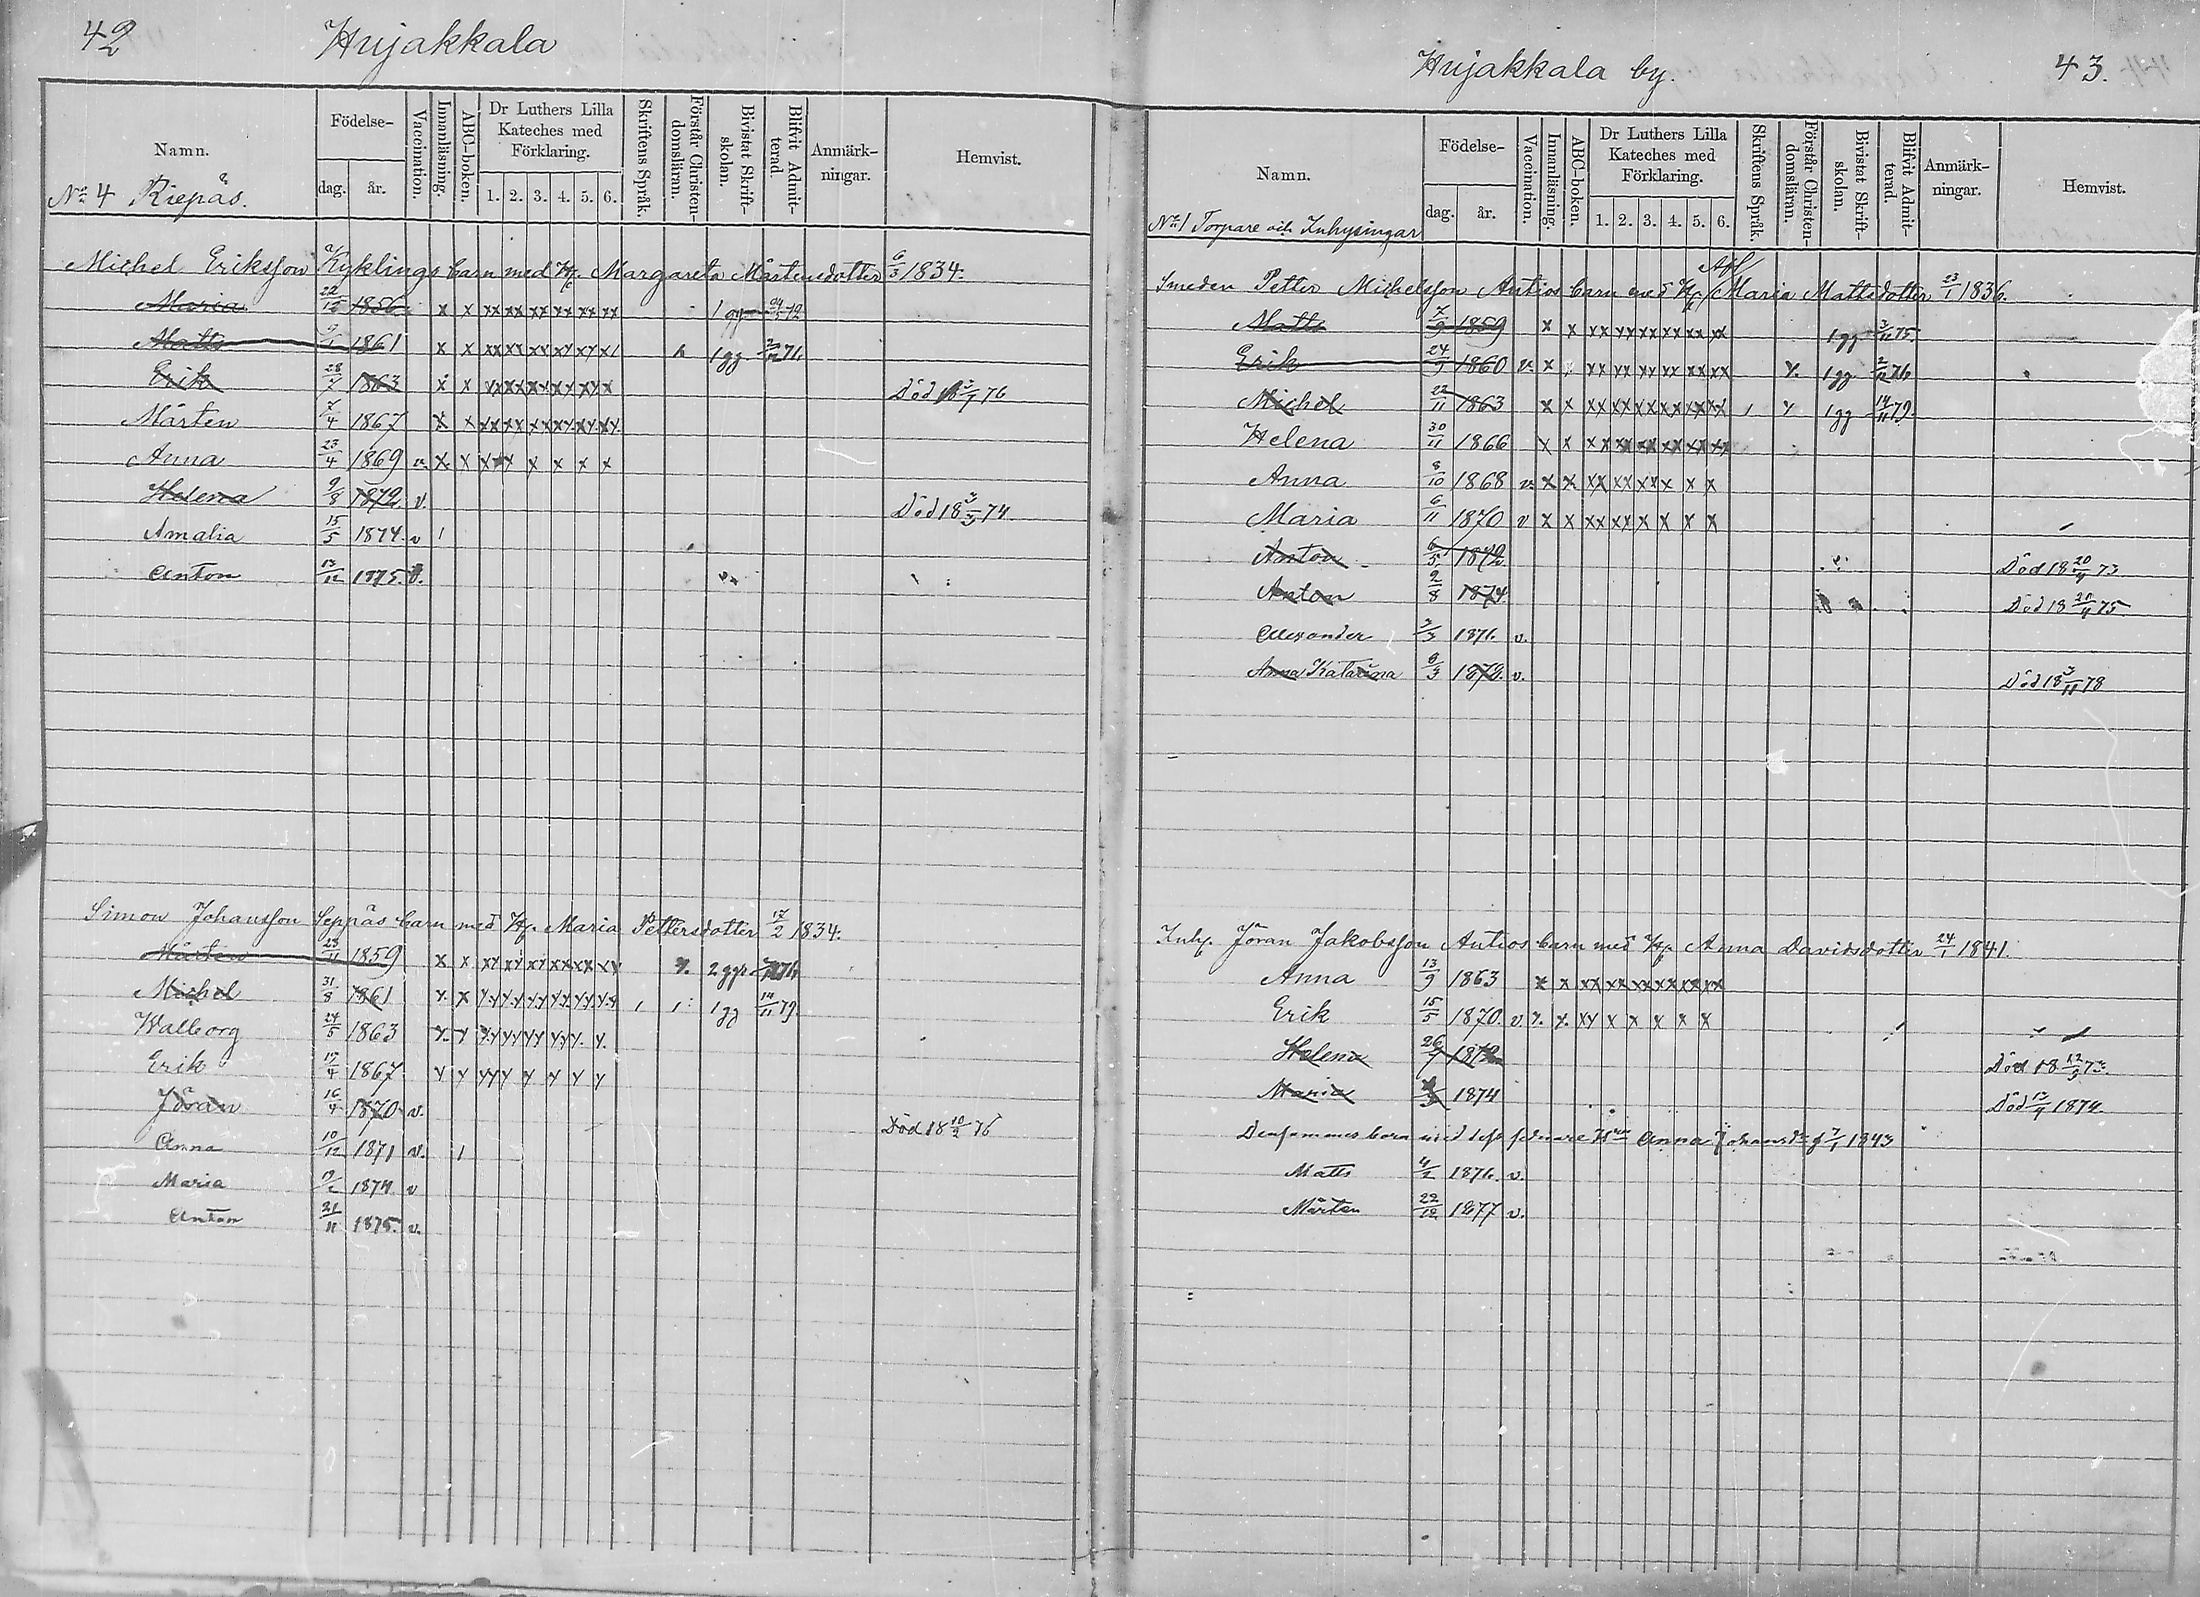 42 Hujakkala
Namn. Födelse- dag. år. Vaccination. Innanläsning. ABC-boken. Dr Luthers Lilla Kateches med Förklaring. 1. 2. 3. 4. 5. 6. Skriftens Språk. Förstår Christendomsläran. Bivistat Skriftskolan. Blifvit Admitterad. Anmärkningar. Hemvist.
No 4 Riepäs.
Michel Eriksson Kyklings barn med H. Margareta Mårtensdotter 6/3 1834.
Maria 22/12 1856 x x xx xx xx xx xx xx 1 gg
Matts 1861 x x xx xx xx xx xx 1 gg 2/12 76
Erik 28/7 1863 x x Död 18 76
Mårten 7/4 1867 x x
Anna 23/4 1869 v. x x x x x x x x
Helena 9/8 1872 v. Död 18 74
Amalia 15/5 1874 v 1
Anton 13/12 1875. v.
Simon Johansson Seppäs barn med H. Maria Pettersdotter 17/2 1834.
Mårten 23/11 1859 x x 2 ggr
Michel 31/8 1861 x x 1 gg 14/11 79.
Walborg 24/5 1863
Erik 17/4 1867
Jöran 16/4 1870 v. Död 18 10/2 76
Anna 10/12 1871 v. 1
Maria 1874 v
Anton 21/11 1875. v.
Hujakkala by. 43.
Namn. Födelse- dag. år. Vaccination. Innanläsning. ABC-boken. Dr Luthers Lilla Kateches med Förklaring. 1. 2. 3. 4. 5. 6. Skriftens Språk. Förstår Christendomsläran. Bivistat Skriftskolan. Blifvit Admitterad. Anmärkningar. Hemvist.
No 1 Torpare och Inhysingar
Smeden Petter Michelsson Antios barn med H. Maria Mattsdotter 23/1 1836.
Matts 7/9 1859 x x xx xx xx xx xx xx 1 gg 3/11 75.
Erik 24/9 1860 v. x xx xx xx xx xx xx 1 gg 2/12 76
Michel 22/11 1863 x x xx xx xx xx xx xx 1 1 gg 14/11 79.
Helena 30/11 1866 x x
Anna 8/10 1868 v. x x xx xx xx x x x
Maria 6/11 1870 v x x xx x x x x x
Anton 6/5 1872 Död 18 20/4 73
Anton 2/8 1874. Död 18 75
Alexander 3/3 1876. v.
Anna Katarina 8/3 1878. v. Död 18 3/11 78
Inh. Jöran Jakobsson Antios barn med H. Anna Davidsdotter 24/1 1841.
Anna 13/9 1863 x x xx xx xx xx xx xx
Erik 15/5 1870. v. x. x. xx x x x x x
Helena 26/7 1872 Död 18 12/3 73.
Maria 1874 Död 13/4 1874.
Densammes barn med dess senare Anna Johansdr f 7/1 1843
Matts 4/2 1876. v.
Mårten 22/12 1877 v.